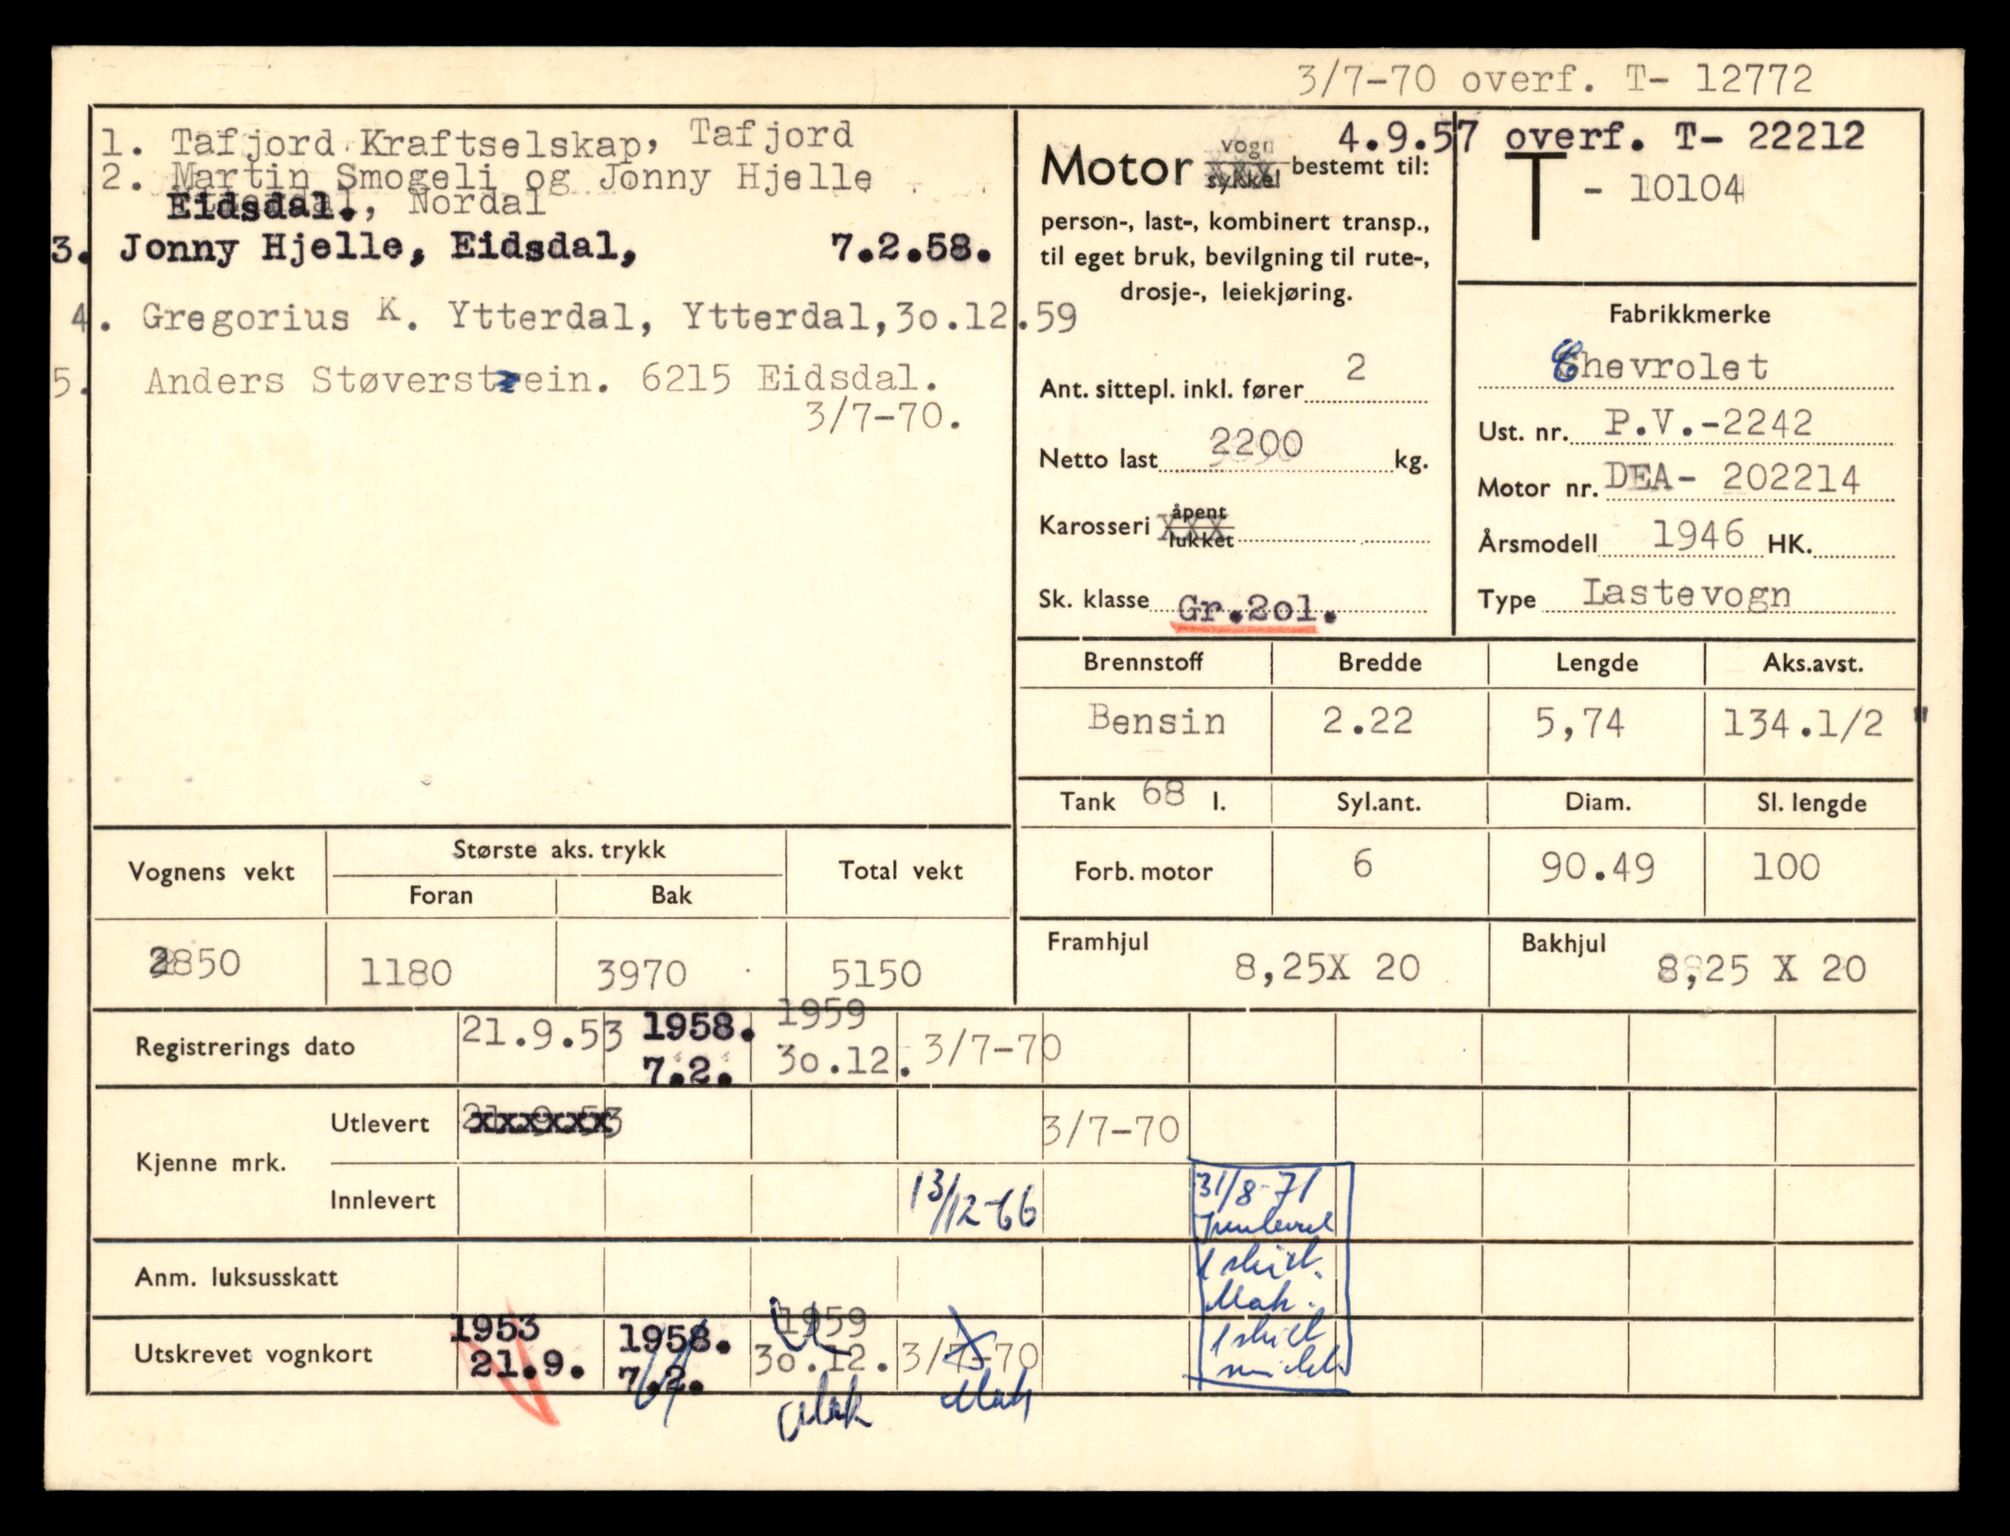 3/7-70 overf. T- 12772
1. Tafjord Kraftselskap, Tafjord
2. Martin Smogeli og Jonny Hjelle
Eidsdal., Nordal
3. Jonny Hjelle, Eidsdal, 7.2.58.
4. Gregorius K. Ytterdal, Ytterdal,3o.12.59
5. Anders Støverstein. 6215 Eidsdal.
3/7-70.
4.9.57 overf. T- 22212
Motor vogn sykkel bestemt til:
person-, last-, kombinert transp.,
til eget bruk, bevilgning til rute-,
drosje-, leiekjøring.
Ant. sittepl. inkl. fører 2
Netto last 2200 kg.
Karosseri åpent lukket
Sk. klasse Gr.2ol.
T - 10104
Fabrikkmerke
Chevrolet
Ust. nr. P.V.-2242
Motor nr. DEA- 202214
Årsmodell 1946 HK.
Type Lastevogn
Brennstoff Bredde Lengde Aks.avst.
Bensin 2.22 5,74 134.1/2 "
Tank 68 l. Syl.ant. Diam. Sl. lengde
Forb. motor 6 90.49 100
Framhjul 8,25X 20 Bakhjul 8,25 X 20
Vognens vekt Største aks. trykk Total vekt
Foran Bak
2850 1180 3970 5150
Registrerings dato 21.9.53 1958. 7.2. 1959 3o.12. 3/7-70
Kjenne mrk.
Utlevert 21.9.53 3/7-70
Innlevert 13/12-66 31/8-71
Innlevert
1 skilt.
Mah.
1 skilt
Anm. luksusskatt
Utskrevet vognkort 1953 21.9. 1958. 7.2. 1959 3o.12. 3/7-70
Mah